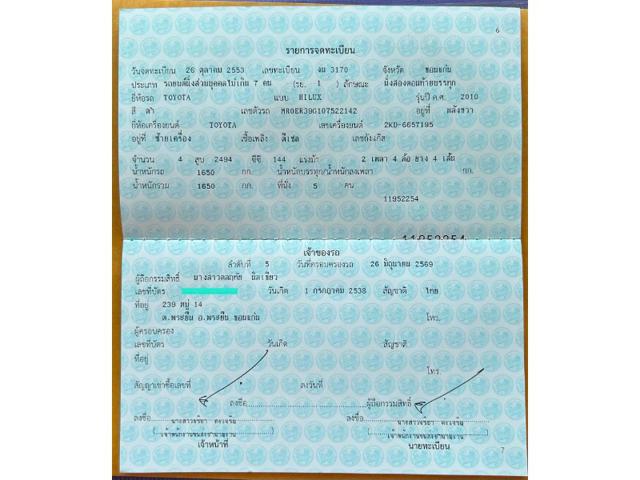 6
รายการจดทะเบียน
วันจดทะเบียน 26 ตุลาคม 2553 เลขทะเบียน ฆน 3170 จังหวัด ขอนแก่น
ประเภท รถยนต์นั่งส่วนบุคคลไม่เกิน 7 คน (รย. 1 ) ลักษณะ นั่งสองตอนท้ายบรรทุก
ยี่ห้อรถ TOYOTA แบบ HILUX รุ่นปี ค.ศ. 2010
สี ดำ เลขตัวรถ MR0ER39G107522142 อยู่ที่ หลังขวา
ยี่ห้อเครื่องยนต์ TOYOTA เลขเครื่องยนต์ 2KD-6657195
อยู่ที่ ซ้ายเครื่อง เชื้อเพลิง ดีเซล เลขถังแก๊ส
จำนวน 4 สูบ 2494 ซีซี 144 แรงม้า 2 เพลา 4 ล้อ ยาง 4 เส้น
น้ำหนักรถ 1650 กก. น้ำหนักบรรทุก/น้ำหนักลงเพลา กก.
น้ำหนักรวม 1650 กก. ที่นั่ง 5 คน
11952254
11952254
เจ้าของรถ
ลำดับที่ 5 วันที่ครอบครองรถ 26 มิถุนายน 2569
ผู้ถือกรรมสิทธิ์ นางสาว
เลขที่บัตร วันเกิด 1 กรกฎาคม 2538 สัญชาติ ไทย
ที่อยู่ 239 หมู่ 14
ต.พระยืน อ.พระยืน ขอนแก่น โทร.
ผู้ครอบครอง
เลขที่บัตร วันเกิด สัญชาติ
ที่อยู่
โทร.
สัญญาเช่าซื้อเลขที่ ลงวันที่
ลงชื่อ ผู้ถือกรรมสิทธิ์
ลงชื่อ ลงชื่อ
เจ้าหน้าที่ นายทะเบียน
7